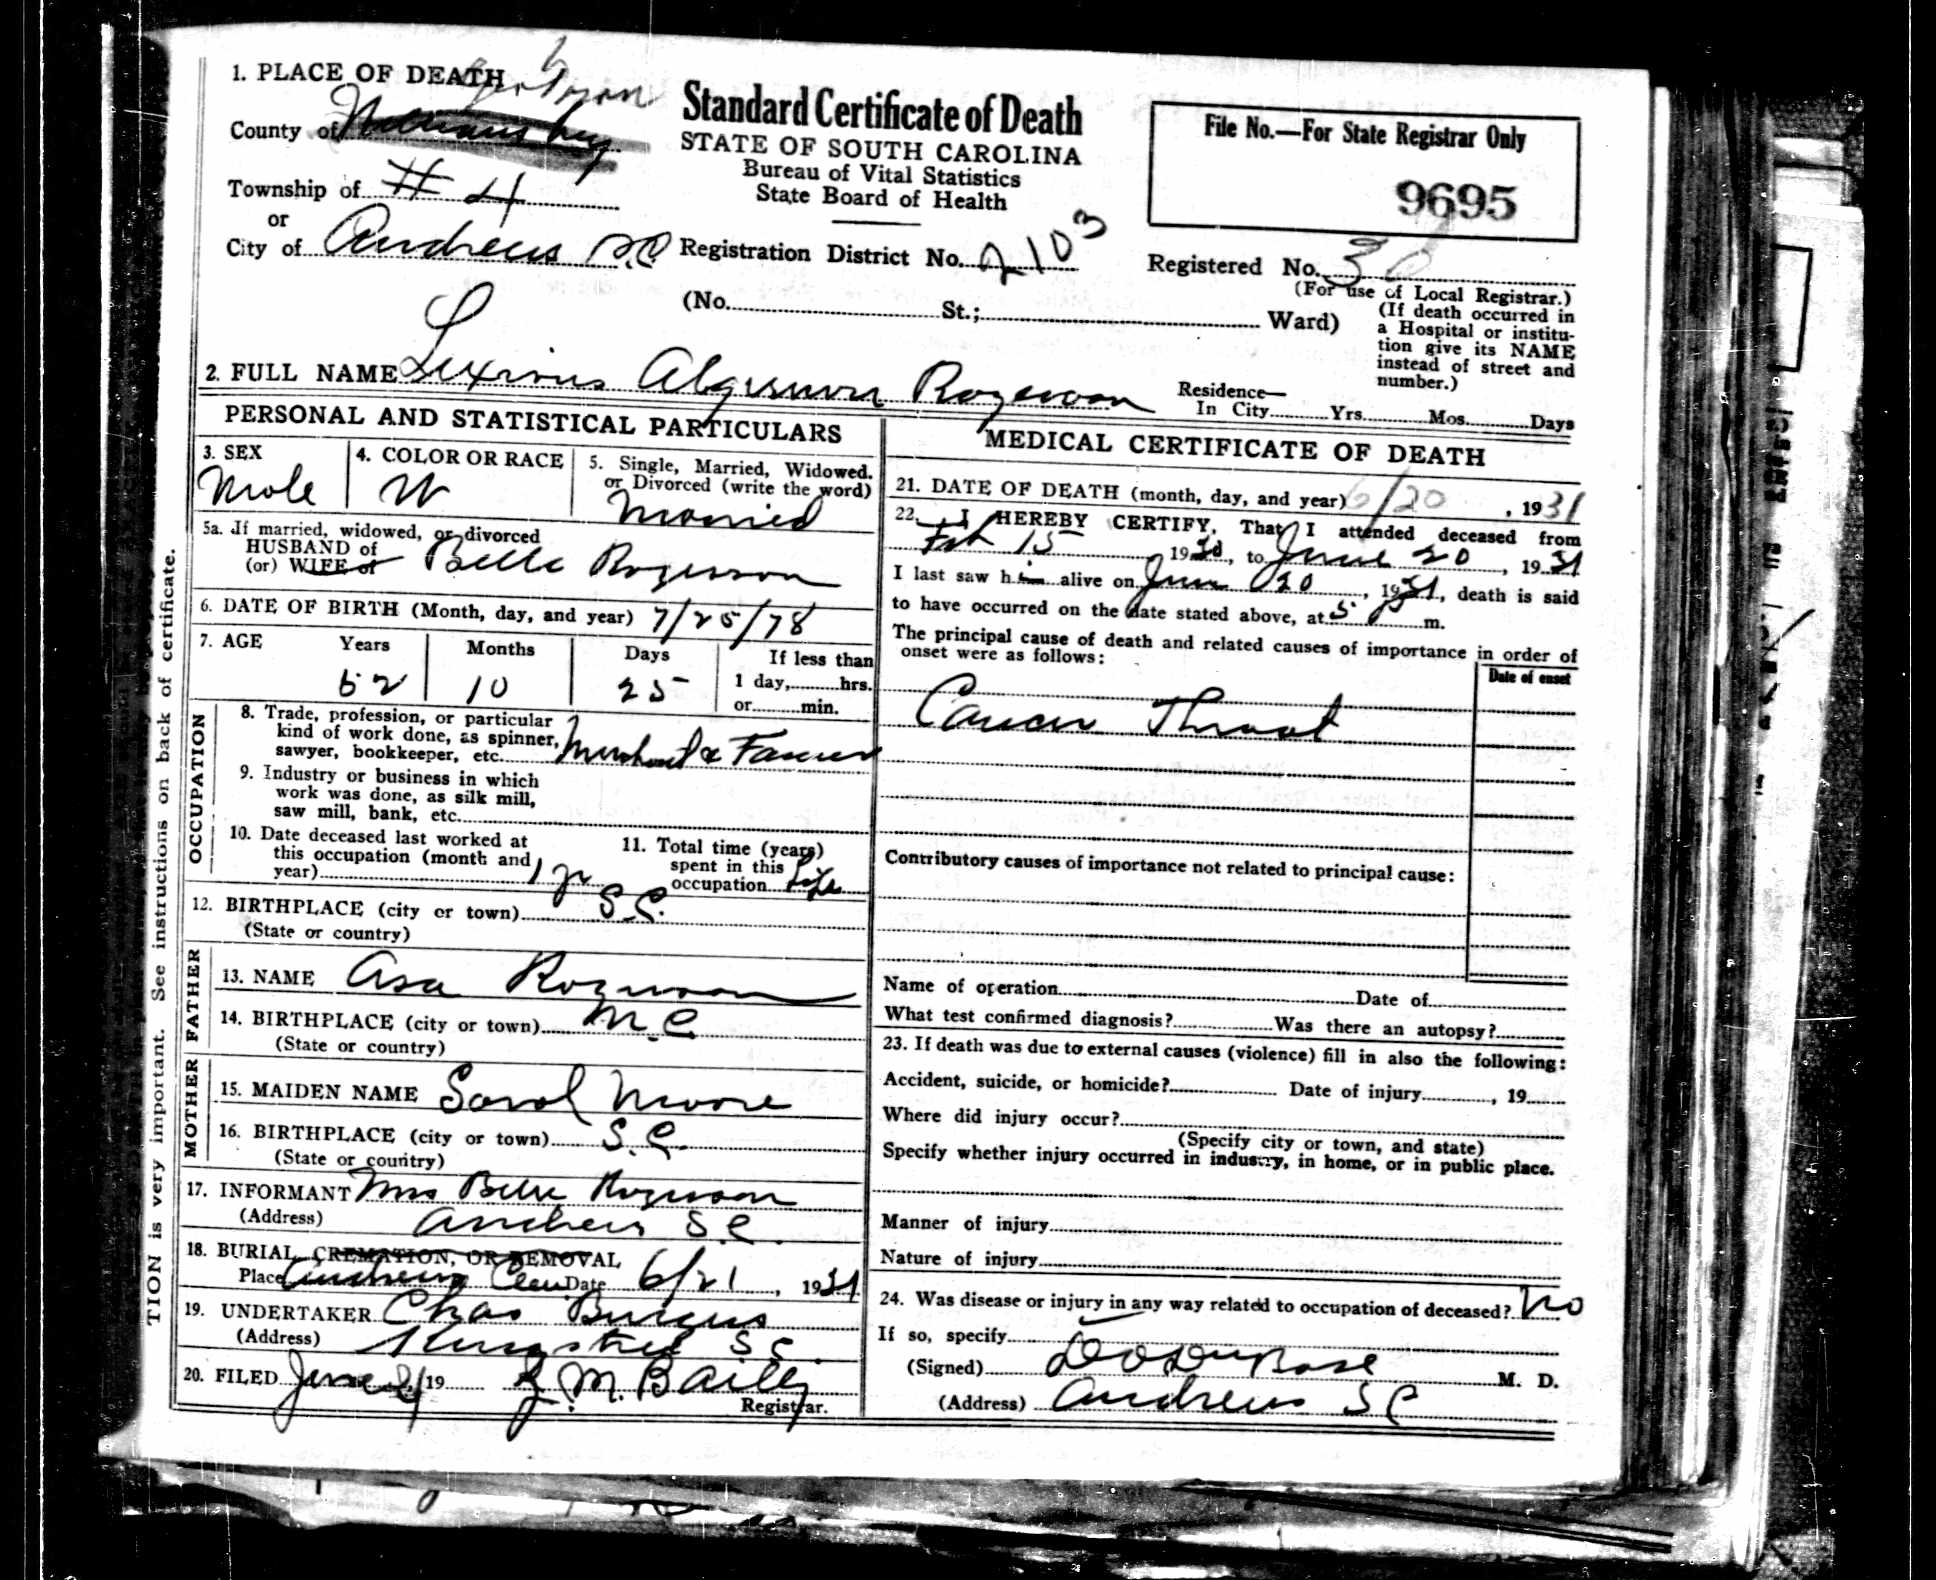 1. PLACE OF DEATH
Georgetown
County of Williamsburg
Township of #4
or
City of Andrews S.C.
Standard Certificate of Death
STATE OF SOUTH CAROLINA
Bureau of Vital Statistics
State Board of Health
File No.—For State Registrar Only
9695
Registration District No. 2103
Registered No. 30
(For use of Local Registrar.)
(No. St.; Ward)
(If death occurred in
a Hospital or institu-
tion give its NAME
instead of street and
number.)
2. FULL NAME Algernon Rogerson
Residence—
In City Yrs. Mos. Days
PERSONAL AND STATISTICAL PARTICULARS
3. SEX
Male
4. COLOR OR RACE
W
5. Single, Married, Widowed,
or Divorced (write the word)
Married
5a. If married, widowed, or divorced
HUSBAND of
(or) WIFE of
Belle Rogerson
6. DATE OF BIRTH (Month, day, and year) 7/25/78
7. AGE Years Months Days If less than
52 10 25 1 day, hrs.
or min.
OCCUPATION
8. Trade, profession, or particular
kind of work done, as spinner,
sawyer, bookkeeper, etc. Merchant & Farmer
9. Industry or business in which
work was done, as silk mill,
saw mill, bank, etc.
10. Date deceased last worked at
this occupation (month and
year) 1 yr
11. Total time (years)
spent in this
occupation Life
12. BIRTHPLACE (city or town) S.C.
(State or country)
FATHER
13. NAME Asa Rogerson
14. BIRTHPLACE (city or town) N.C.
(State or country)
MOTHER
15. MAIDEN NAME Sarah Moore
16. BIRTHPLACE (city or town) S.C.
(State or country)
17. INFORMANT Mrs Belle Rogerson
(Address) Andrews S.C.
18. BURIAL, CREMATION, OR REMOVAL
Place Andrews Cem Date 6/21, 1931
19. UNDERTAKER Chas Burgess
(Address) Kingstree S.C.
20. FILED June 19 M. Bailey
Registrar.
MEDICAL CERTIFICATE OF DEATH
21. DATE OF DEATH (month, day, and year) 6/20, 1931
22. I HEREBY CERTIFY, That I attended deceased from
Feb 15 1930, to June 20, 1931
I last saw him alive on June 20, 1931, death is said
to have occurred on the date stated above, at 5 m.
The principal cause of death and related causes of importance in order of
onset were as follows:
Date of onset
Cancer Throat
Contributory causes of importance not related to principal cause:
Name of operation Date of
What test confirmed diagnosis? Was there an autopsy?
23. If death was due to external causes (violence) fill in also the following:
Accident, suicide, or homicide? Date of injury, 19
Where did injury occur?
(Specify city or town, and state)
Specify whether injury occurred in industry, in home, or in public place.
Manner of injury
Nature of injury
24. Was disease or injury in any way related to occupation of deceased? No
If so, specify
(Signed) DuBose M. D.
(Address) Andrews S C
TION is very important. See instructions on back of certificate.